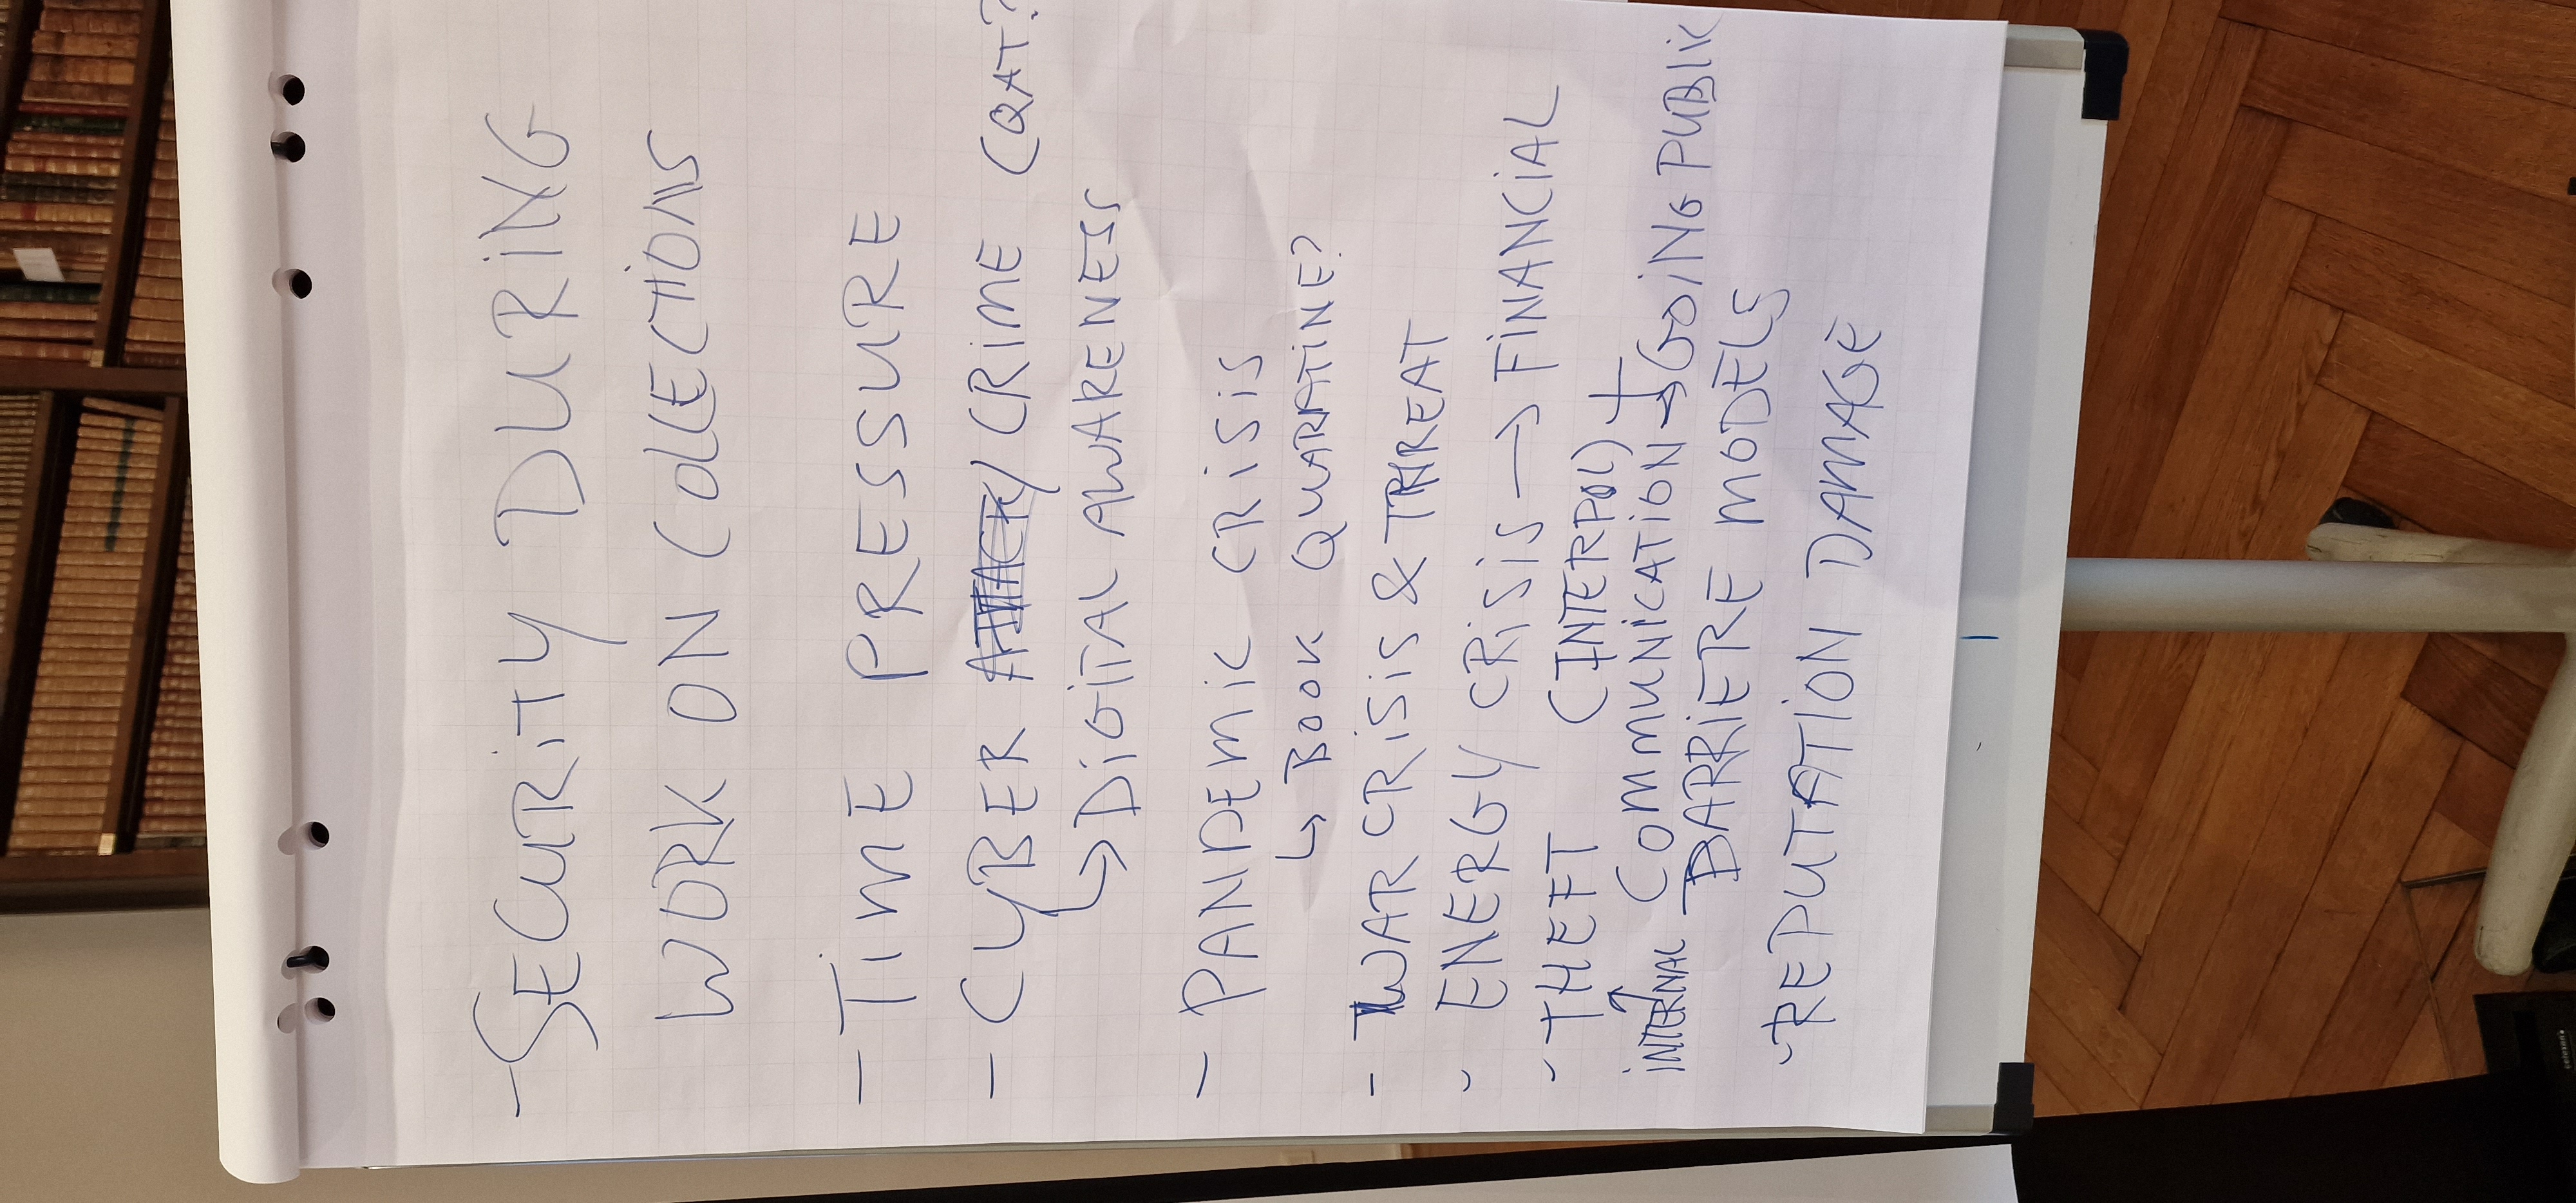 - SECURITY DURING
WORK ON COLLECTIONS
- TIME PRESSURE
- CYBER ATTACK/CRIME (QAT?
↳ DIGITAL AWARENESS
- PANDEMIC CRISIS
↳ BOOK QUARATINE?
- WAR CRISIS & THREAT
- ENERGY CRISIS → FINANCIAL
- THEFT (INTERPOL) +
INTERNAL COMMUNICATION → GOING PUBLIC
BARRIERE MODELS
- REPUTATION DAMAGE